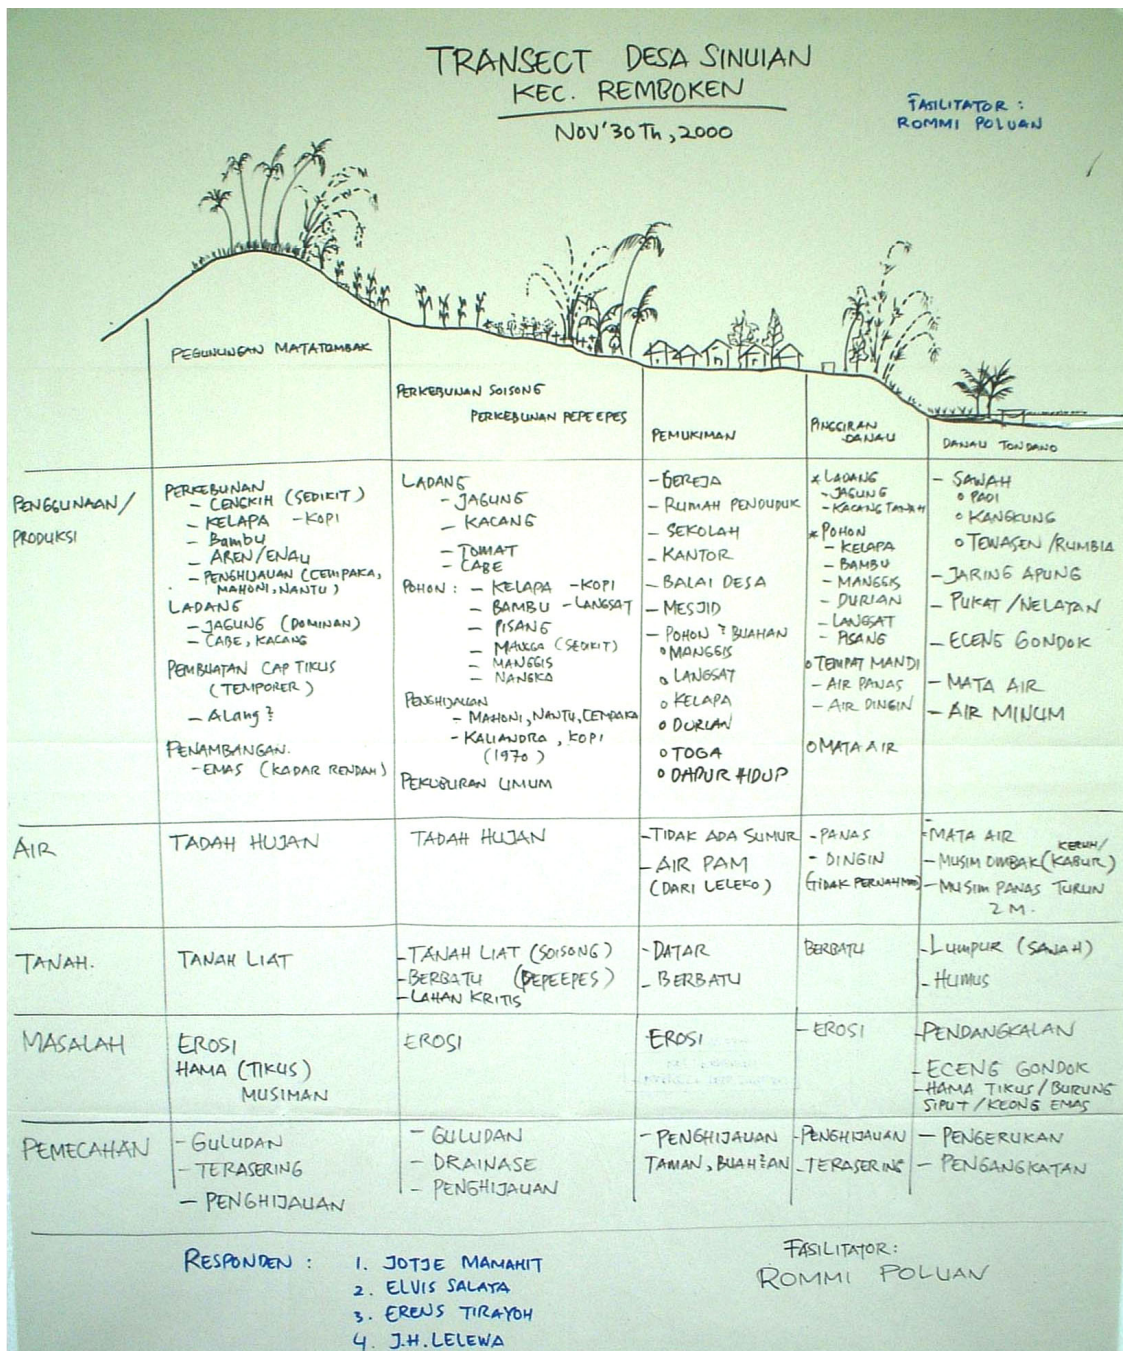 TRANSECT DESA SINUIAN
KEC. REMBOKEN
NOV'30Th, 2000
FASILITATOR :
ROMMI POLUAN
PEGUNUNGAN MATATOMBAK
PERKEBUNAN SOISONG
PERKEBUNAN PEPEEPES
PEMUKIMAN
PINGGIRAN
DANAU
DANAU TONDANO
PENGGUNAAN/
PRODUKSI
PERKEBUNAN
- CENGKIH (SEDIKIT)
- KELAPA - KOPI
- Bambu
- AREN/ENAU
- PENGHIJAUAN (CEMPAKA,
MAHONI, NANTU)
LADANG
- JAGUNG (DOMINAN)
- CABE, KACANG
PEMBUATAN CAP TIKUS
(TEMPORER)
- Alang²
PENAMBANGAN.
- EMAS (KADAR RENDAH)
LADANG
- JAGUNG
- KACANG
- TOMAT
- CABE
POHON : - KELAPA - KOPI
- BAMBU - LANGSAT
- PISANG
- MANGGA (SEDIKIT)
- MANGGIS
- NANGKA
PENGHIJAUAN
- MAHONI, NANTU, CEMPAKA
- KALIANDRA, KOPI
(1970)
PEKUBURAN UMUM
- GEREJA
- RUMAH PENDUDUK
- SEKOLAH
- KANTOR
- BALAI DESA
- MESJID
- POHON² BUAHAN
o MANGGIS
o LANGSAT
o KELAPA
o DURIAN
o TOGA
o DAPUR HIDUP
* LADANG
- JAGUNG
- KACANG TANAH
* POHON
- KELAPA
- BAMBU
- MANGGIS
- DURIAN
- LANGSAT
- PISANG
o TEMPAT MANDI
- AIR PANAS
- AIR DINGIN
o MATA AIR
- SAWAH
o PADI
o KANGKUNG
o TEWASEN /RUMBIA
- JARING APUNG
- PUKAT /NELAYAN
- ECENG GONDOK
- MATA AIR
- AIR MINUM
AIR
TADAH HUJAN
TADAH HUJAN
- TIDAK ADA SUMUR
- AIR PAM
(DARI LELEKO)
- PANAS
- DINGIN
(TIDAK PERNAH
- MATA AIR
- MUSIM OMBAK (KERUH/
KABUR)
- MUSIM PANAS TURUN
2 M.
TANAH.
TANAH LIAT
- TANAH LIAT (SOISONG)
- BERBATU (PEPEEPES)
- LAHAN KRITIS
- DATAR
- BERBATU
BERBATU
- LUMPUR (SAWAH)
- HUMUS
MASALAH
EROSI
HAMA (TIKUS)
MUSIMAN
EROSI
EROSI
- EROSI
- PENDANGKALAN
- ECENG GONDOK
- HAMA TIKUS / BURUNG
SIPUT / KEONG EMAS
PEMECAHAN
- GULUDAN
- TERASERING
- PENGHIJAUAN
- GULUDAN
- DRAINASE
- PENGHIJAUAN
- PENGHIJAUAN
TAMAN, BUAH²AN
- PENGHIJAUAN
- TERASERING
- PENGERUKAN
- PENGANGKATAN
RESPONDEN :
1. JOTJE MAMAHIT
2. ELVIS SALAYA
3. ERENS TIRAYOH
4. J.H. LELEWA
FASILITATOR:
ROMMI POLUAN